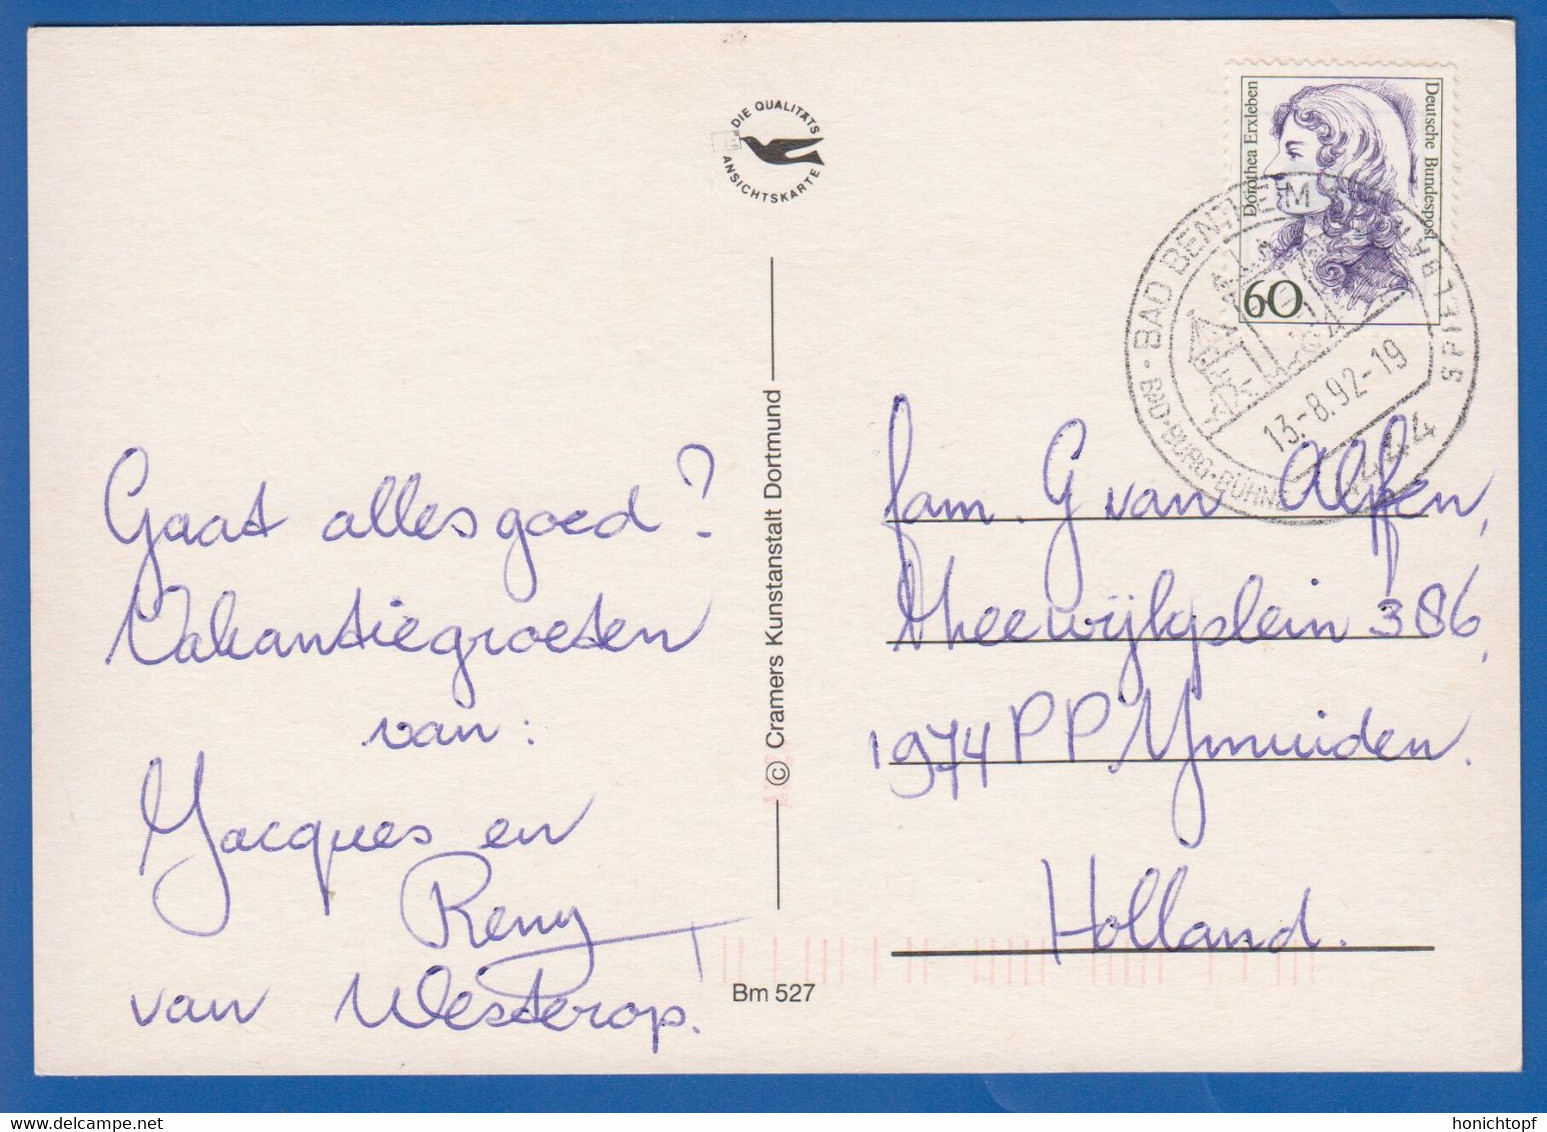 Gaat alles goed?
Vakantiegroeten
van:
Yacques en
Remy
van Westerop.
DIE QUALITÄTS
ANSICHTSKARTE
© Cramers Kunstanstalt Dortmund
Bm 527
Dorothea Erxleben
Deutsche Bundespost
60
BAD BENTHEIM
BAD·BURG·BÜHNE
SPIELBANK
13.-8.92-19
4444
fam. G van Alfen,
Theewijkplein 386,
1974 PP Ymuiden.
Holland.
honichtopf